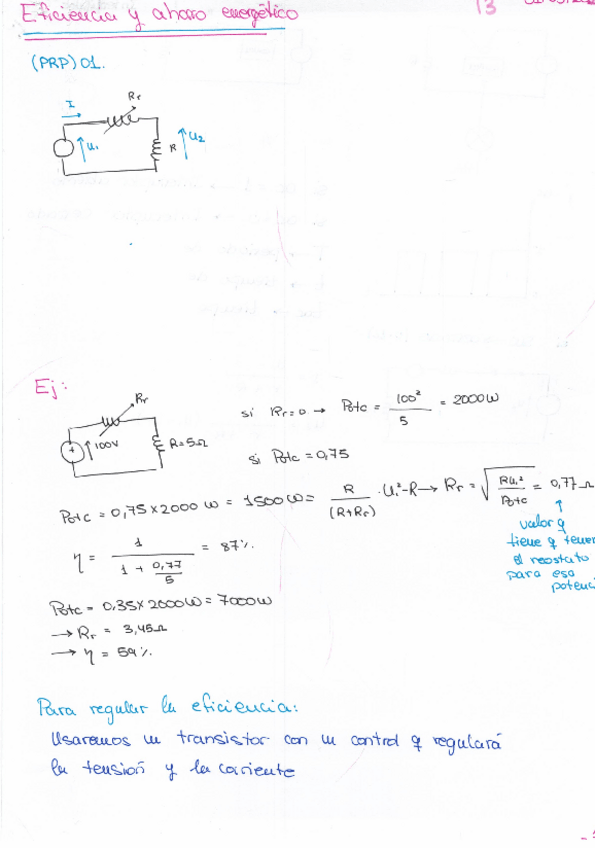 Eficiencia y ahorro energético
13
(PRP) 01.
I
Rr
U1
R
U2
Ej:
Rr
100V
R=5Ω
si Rr=0 → Potc = 100² / 5 = 2000W
si Potc = 0,75
Potc = 0,75 x 2000 W = 1500 W = R / (R+Rr) · U1² - R → Rr = √(R U1² / Potc) = 0,77 Ω
↑
valor q
tiene q tener
el reostato
para esa
potenci
η = 1 / (1 + 0,77/5) = 87%.
Potc = 0,35 x 2000W = 7000W
→ Rr = 3,45Ω
→ η = 59%.
Para regular la eficiencia:
Usaremos un transistor con un control q regulará
la tensión y la corriente